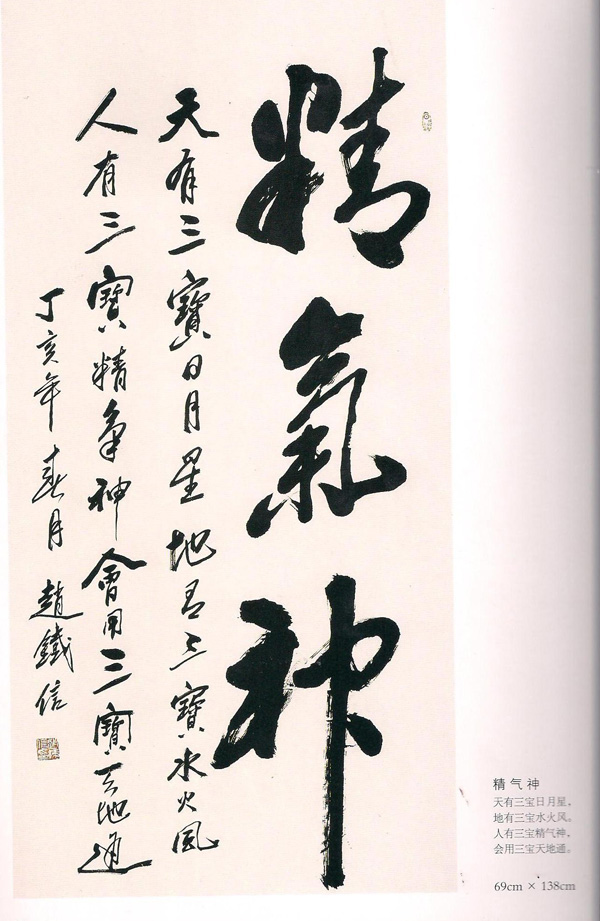 精氣神
天有三寶日月星地有三寶水火風
人有三寶精氣神會用三寶天地通
丁亥年春月趙鐵信
精气神
天有三宝日月星,
地有三宝水火风。
人有三宝精气神,
会用三宝天地通。
69cm × 138cm